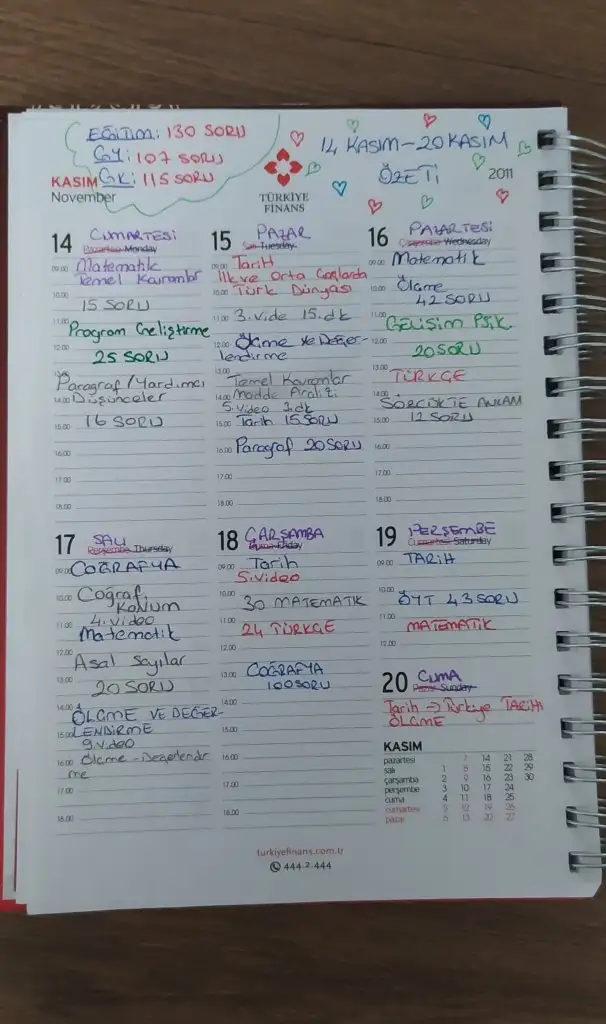 EĞİTİM: 130 SORU
GY: 107 SORU
GK: 115 SORU
KASIM
November
TÜRKİYE
FİNANS
14 KASIM-20 KASIM
ÖZETİ
2011
14 CUMARTESİ
Pazartesi Monday
09.00 Matematik
Temel Kavramlar
10.00
15 SORU
11.00
Program Geliştirme
12.00
25 SORU
13.00
Paragraf/Yardımcı
14.00 Düşünceler
15.00 16 SORU
16.00
17.00
18.00
15 PAZAR
Salı Tuesday
09.00 Tarih
İlk ve Orta Çağlarda
10.00 Türk Dünyası
11.00 3. vide 15.dk
12.00 Ölçme ve Değer-
lendirme
13.00
Temel Kavramlar
14.00 Madde Analizi
5.video 3.dk
15.00 Tarih 15 SORU
16.00 Paragraf 20 SORU
17.00
18.00
16 PAZARTESİ
Çarşamba Wednesday
09.00 Matematik
10.00 Ölçme
42 SORU
11.00
GELİŞİM PSİK.
12.00
20 SORU
13.00
TÜRKÇE
14.00
SÖZCÜKTE ANLAM
15.00 12 SORU
16.00
17.00
18.00
17 SALI
Perşembe Thursday
09.00 COĞRAFYA
10.00 Coğraf.
KONUM
11.00 4. video
Matematik
12.00
Asal Sayılar
13.00
20 SORU
14.00
ÖLÇME VE DEĞER-
15.00 LENDİRME
9.video
16.00 Ölçme-Değerlendir
me
17.00
18.00
18 ÇARŞAMBA
Cuma Friday
09.00 Tarih
5.video
10.00
30 MATEMATİK
11.00
24 TÜRKÇE
12.00
13.00 COĞRAFYA
100 SORU
14.00
15.00
16.00
17.00
18.00
19 PERŞEMBE
Cumartesi Saturday
09.00 TARİH
10.00
ÖYT 43 SORU
11.00
MATEMATİK
12.00
20 CUMA
Pazar Sunday
Tarih → Türkiye TARİHİ
ÖLÇME
KASIM
pazartesi 7 14 21 28
salı 1 8 15 22 29
çarşamba 2 9 16 23 30
perşembe 3 10 17 24
cuma 4 11 18 25
cumartesi 5 12 19 26
pazar 6 13 20 27
turkiyefinans.com.tr
444 2 444